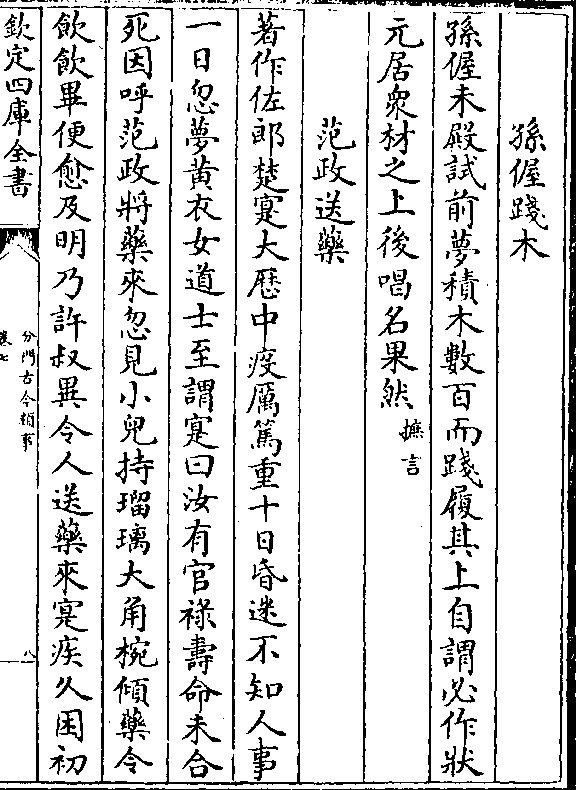 孫偓踐木
孫偓未殿試前夢積木數百而踐履其上自謂必作狀
元居衆材之上後唱名果然 摭言
范政送藥
著作佐郎楚寔大歷中疫厲篤重十日昏迷不知人事
一日忽夢黄衣女道士至謂寔曰汝有官祿壽命未合
死因呼范政將藥來忽見小兒持瑠璃大角椀傾藥令
飲飲畢便愈及明乃許叔異令人送藥來寔疾久困初
欽定四庫全書
分門古今類事
卷七
八